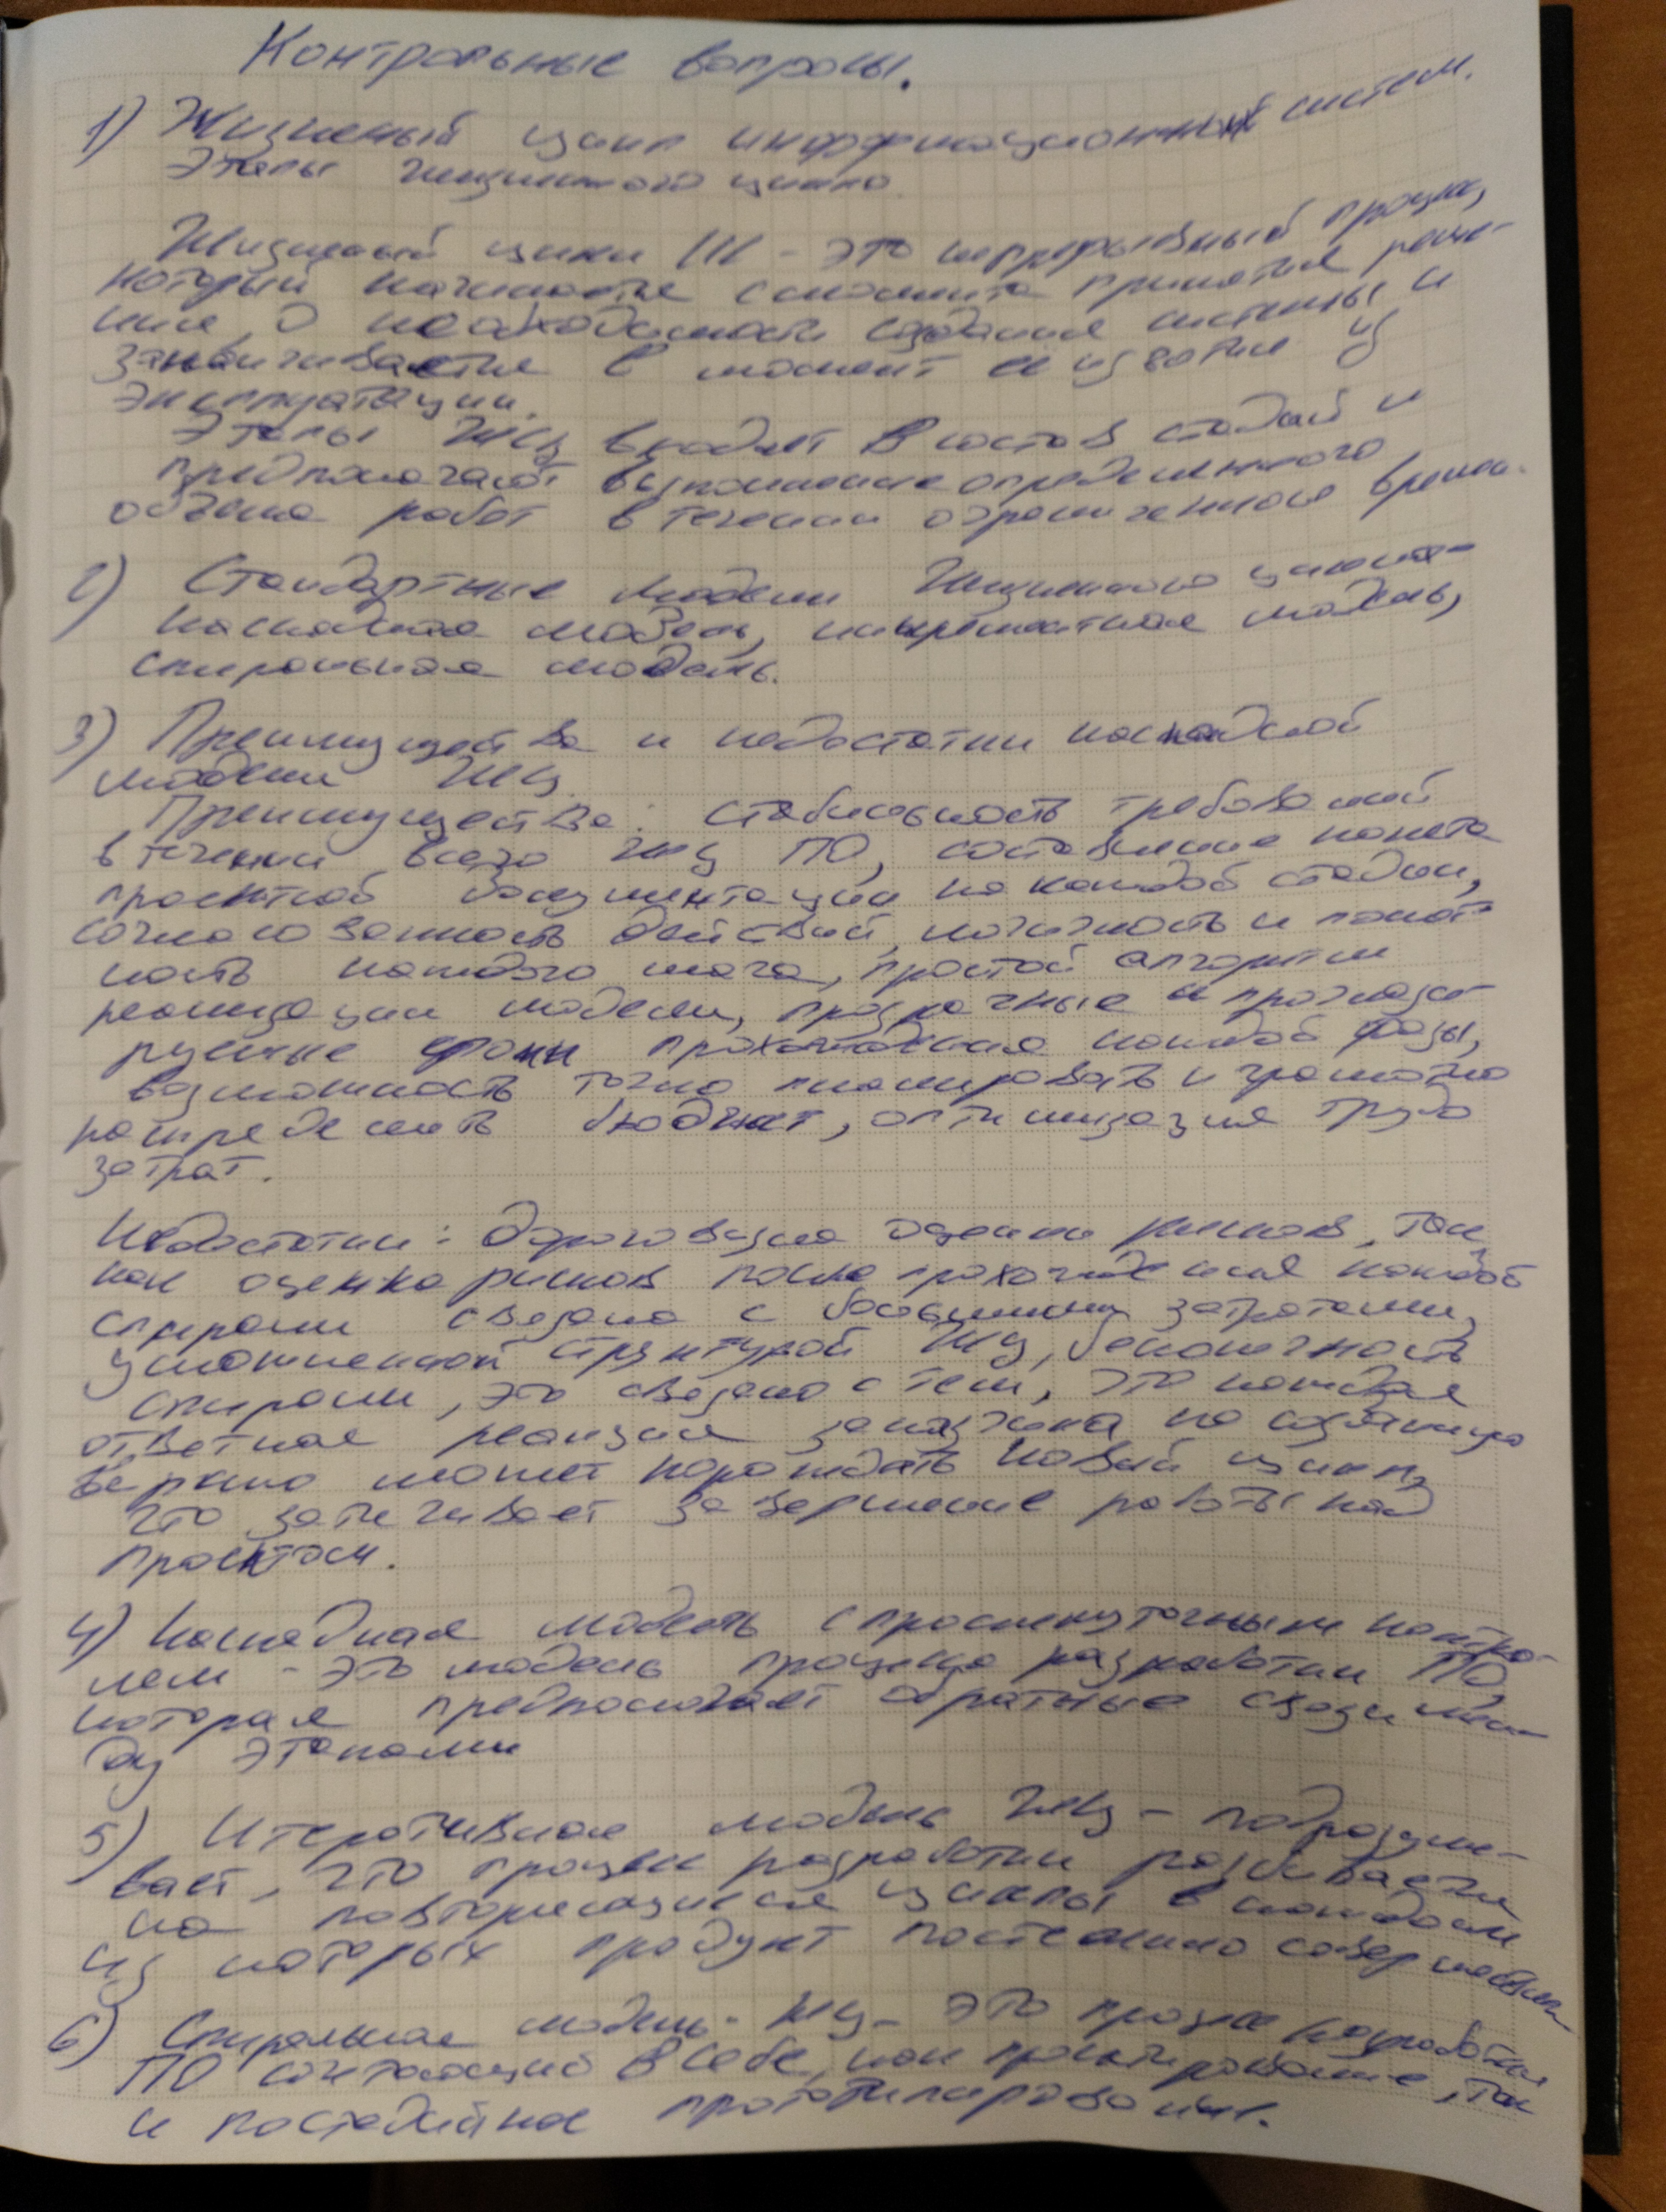 Контрольные вопросы.
1) Жизненый цикл информационных систем.
Этапы жизненного цикла.
Жизненый цикл ИС - это непрерывный процесс,
который начинается с момента принятия реше-
ния, о необходимости создания системы и
заканчивается в момент ее изъятия из
эксплуатации.
Этапы ЖЦ входят в состав стадий и
предполагают выполнение определенного
объема работ в течении ограниченного времен.
2) Стандартные модели Жизненного цикла -
Каскадная модель, инкрементная модель,
спиральная модель.
3) Преимущества и недостатки каскадной
модели ЖЦ
Преимущества: стабильность требований
в течении всего ЖЦ ПО, составление пакета
проектной документации на каждой стадии,
согласованность действий, логичность и понят-
ность каждого шага, простой алгоритм
реализации модели, прозрачные и прогнози-
руемые сроки прохождения каждой фазы,
возможность точно планировать и грамотно
распределить бюджет, оптимизация трудо
затрат.
Недостатки: дороговизна оценки рисков, так
как оценка рисков после прохождения каждой
спирали связана с большими затратами,
усложненной структурой ЖЦ, бесконечность
спирали, это связано с тем, что каждая
ответная реакция заказчика на созданную
версию может порождать новый цикл,
что затягивает завершение работы над
проектом.
4) Каскадная модель с промежуточным контро-
лем - это модель процесса разработки ПО
которая предполагает обратные связи меж
ду этапами
5) Итеративная модель ЖЦ - подразуме-
вает, что процесс разработки разбивается
на повторяющиеся циклы в каждом
из которых продукт постепенно совершенствуется
6) Спиральная модель - ЖЦ - это процесс разработки
ПО сочетающий в себе, как проектирование, так
и постадийное прототипирование.